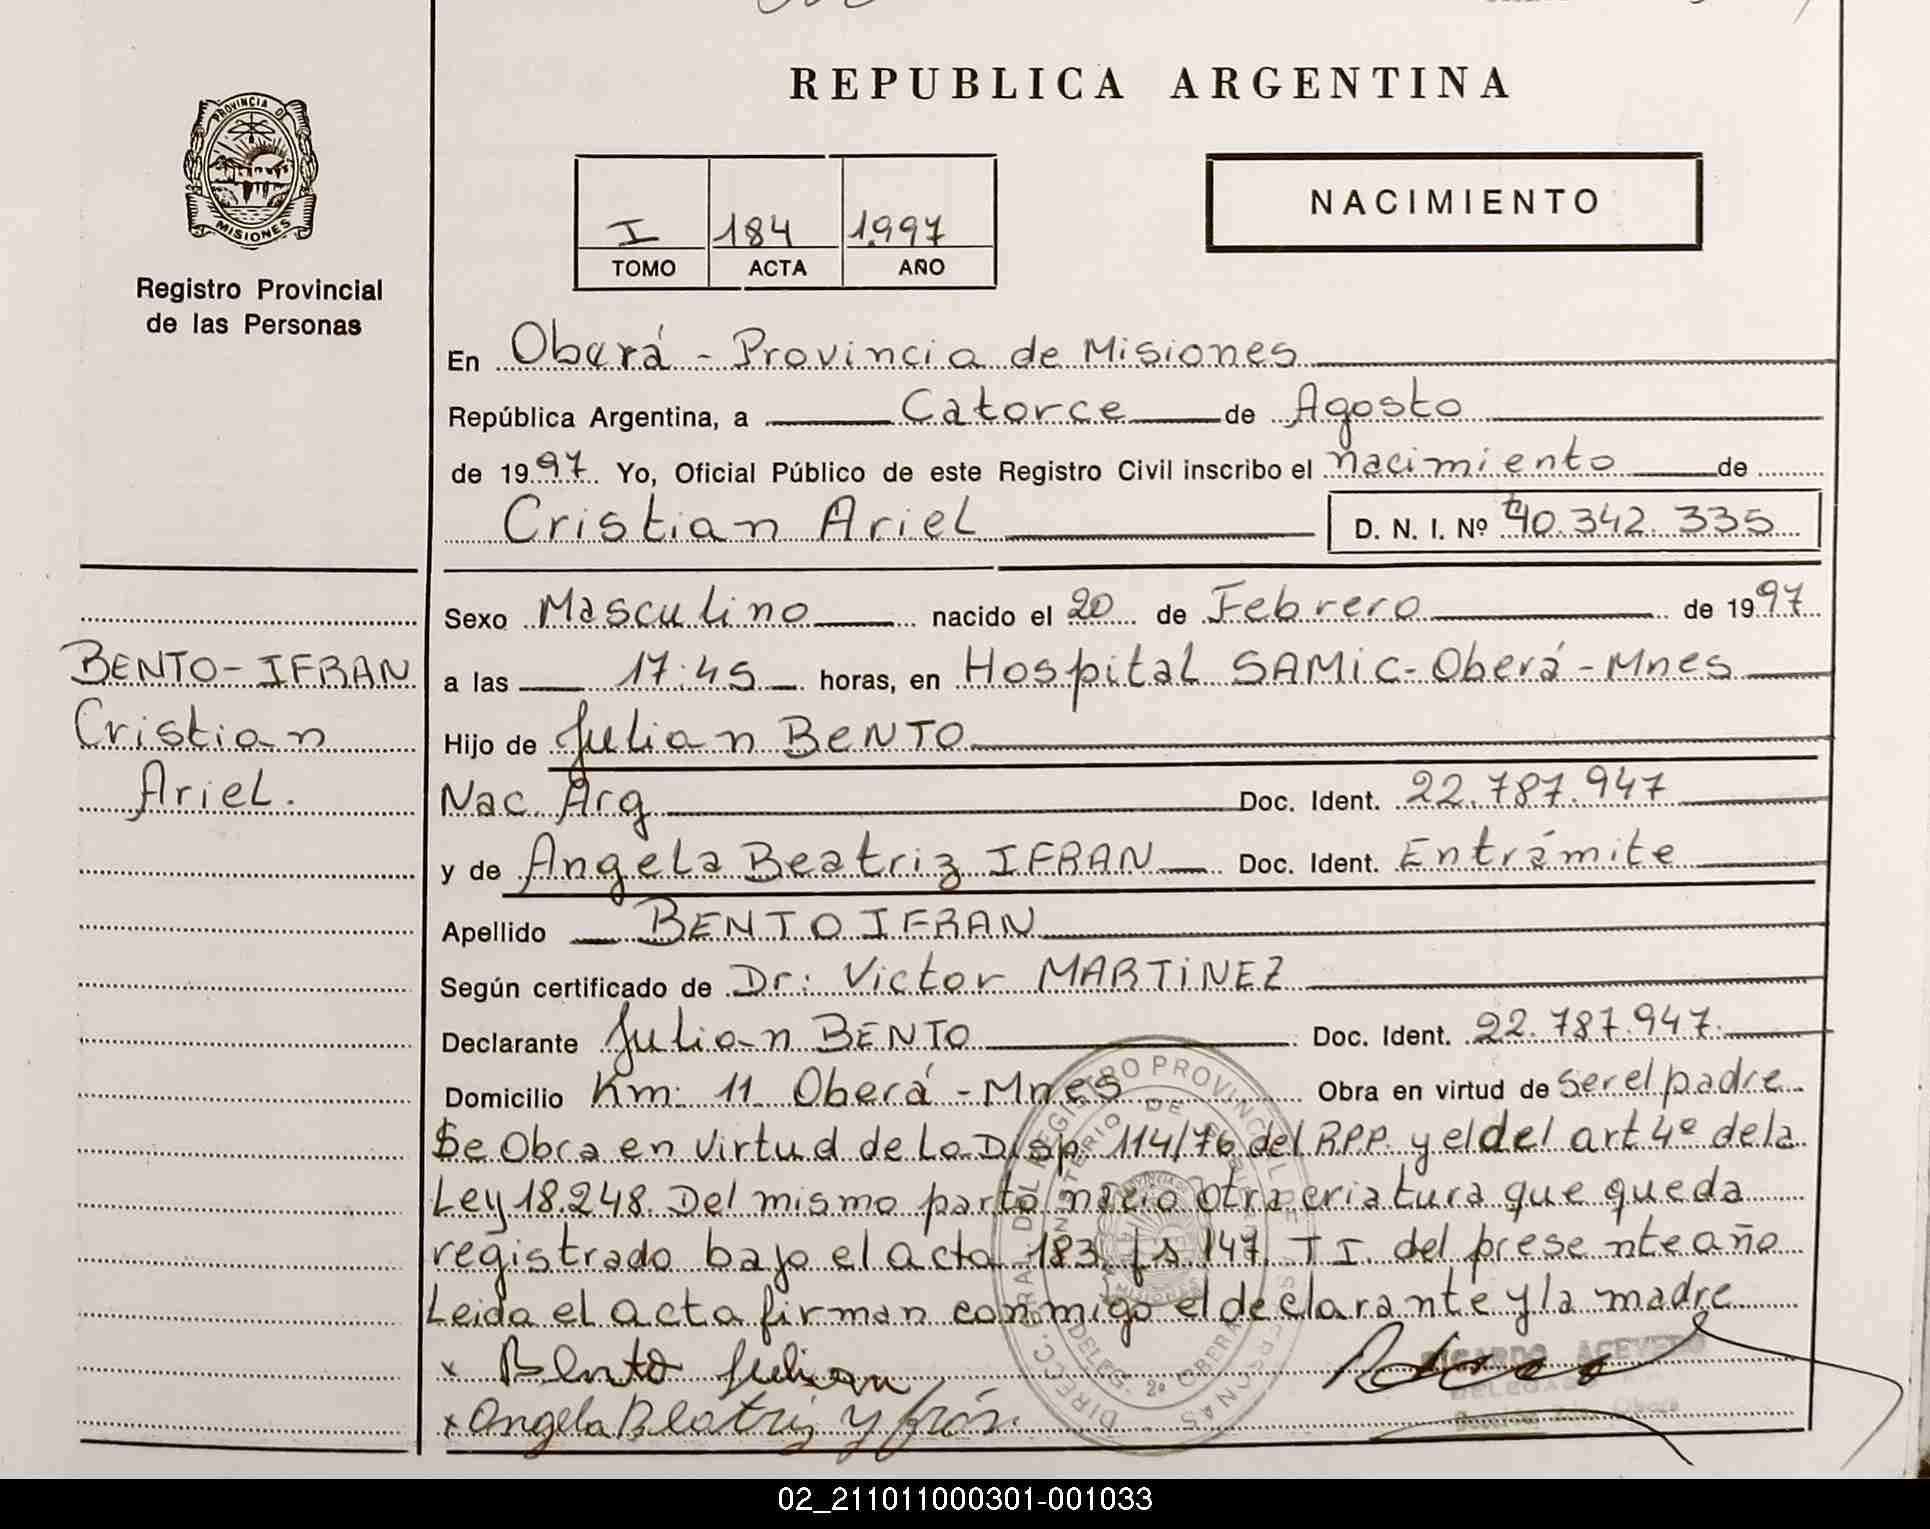 REPUBLICA ARGENTINA
PROVINCIA D
MISIONES
Registro Provincial
de las Personas
I 184 1.997
TOMO ACTA AÑO
NACIMIENTO
En Oberá - Provincia de Misiones
República Argentina, a Catorce de Agosto
de 1997. Yo, Oficial Público de este Registro Civil inscribo el nacimiento de
Cristian Ariel D. N. I. Nº 40.342.335
Sexo Masculino nacido el 20 de Febrero de 1997
BENTO-IFRAN
Cristian
Ariel.
a las 17:45 horas, en Hospital SAMIC-Oberá-Mnes
Hijo de Julian BENTO
Nac. Arg Doc. Ident. 22.787.947
y de Angela Beatriz IFRAN Doc. Ident. Entrámite
Apellido BENTO IFRAN
Según certificado de Dr: Victor MARTINEZ
Declarante Julian BENTO Doc. Ident. 22.787.947.
Domicilio Km: 11 Oberá - Mnes Obra en virtud de ser el padre
Se Obra en virtud de la Disp. 114/76 del R.P.P. y el del art 4º de la
Ley 18.248. Del mismo parto nacio otra criatura que queda
registrado bajo el acta 183 fs 147. T I. del presente año
Leida el acta firman conmigo el declarante y la madre
x Bento Julian
x Angela Beatriz Yfrán.
DIRECC. GRAL. DEL REGISTRO PROVINCIAL DE LAS PERSONAS
MINISTERIO DE
DELEG. 2º OBERA
RICARDO ACEVEDO
DELEGADO
02_211011000301-001033